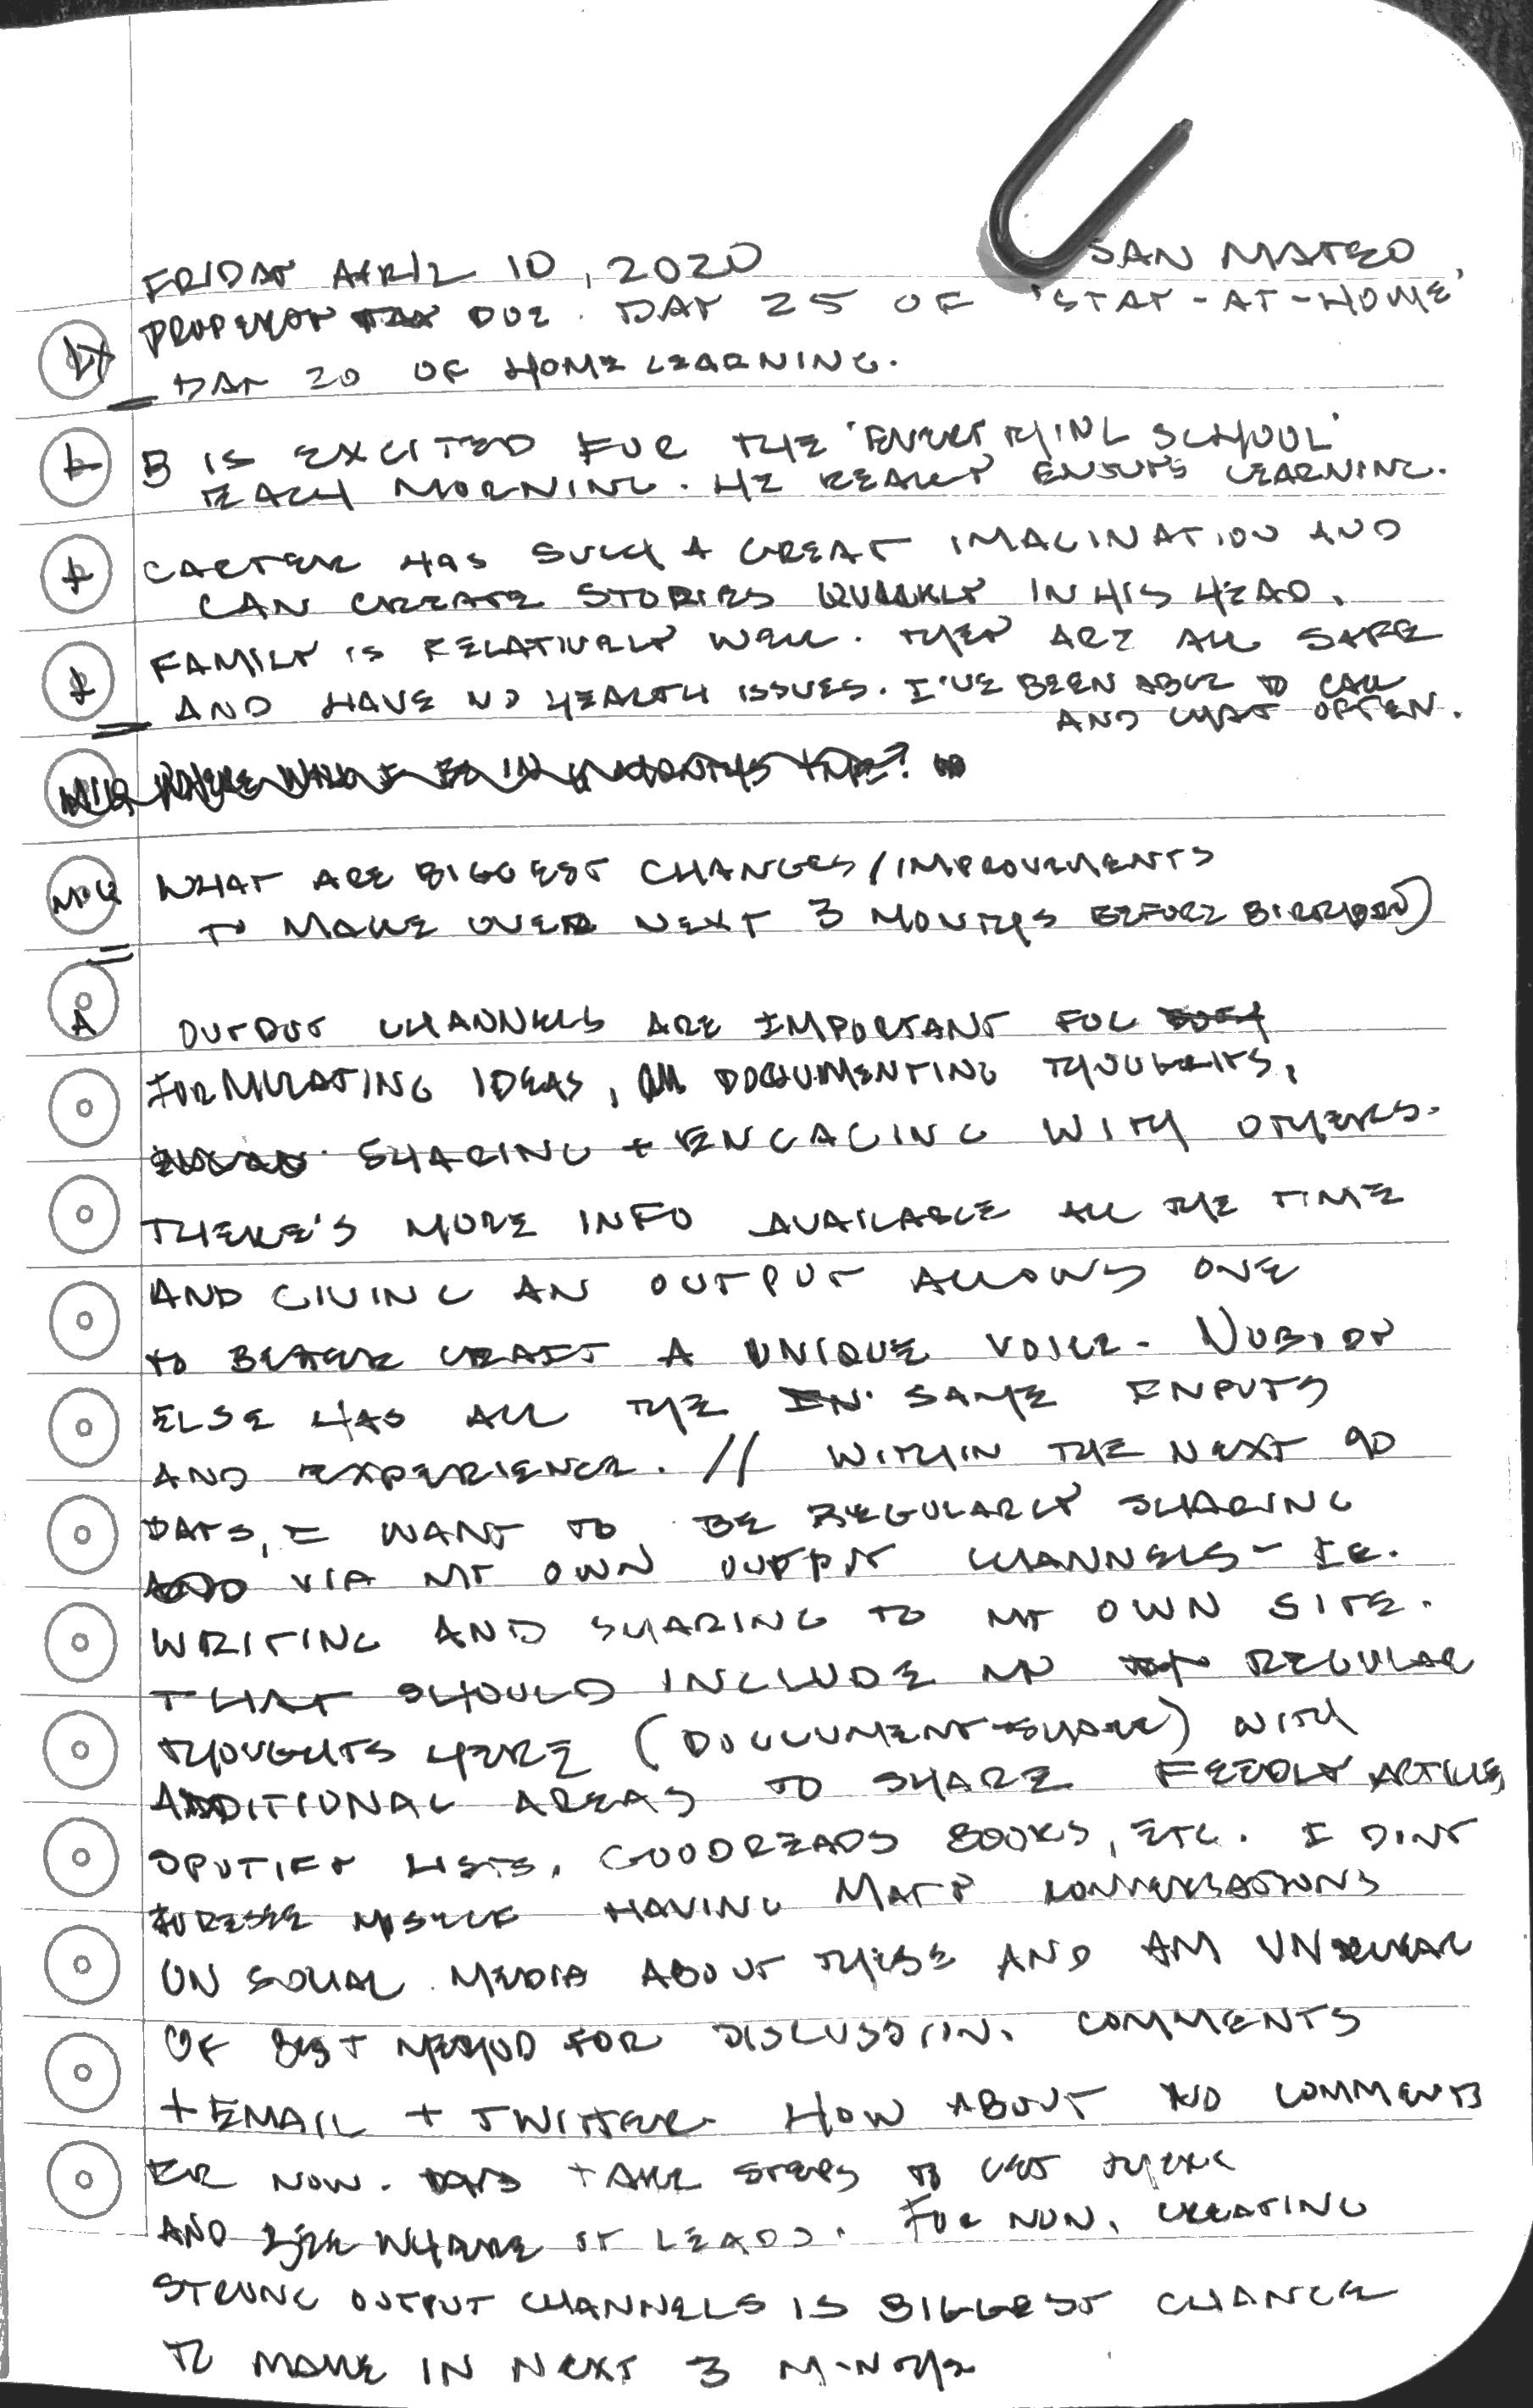 FRIDAY APRIL 10, 2020 SAN MATEO
PROPERTY TAX DUE. DAY 25 OF 'STAY-AT-HOME'
DAY 20 OF HOME LEARNING.
B IS EXCITED FOR THE 'EVERYTHING SCHOOL'
EACH MORNING. HE REALLY ENJOYS LEARNING.
CARTER HAS SUCH A GREAT IMAGINATION AND
CAN CREATE STORIES QUICKLY IN HIS HEAD.
FAMILY IS RELATIVELY WELL. THEY ARE ALL SAFE
AND HAVE NO HEALTH ISSUES. I'VE BEEN ABLE TO CALL
AND CHAT OFTEN.
WHERE WILL I BE IN MONTHS TIME?
WHAT ARE BIGGEST CHANGES/IMPROVEMENTS
TO MAKE OVER NEXT 3 MONTHS BEFORE BIRTHDAY)
A OUTPUT CHANNELS ARE IMPORTANT FOR
FORMULATING IDEAS, DOCUMENTING THOUGHTS,
SHARING + ENGAGING WITH OTHERS.
THERE'S MORE INFO AVAILABLE ALL THE TIME
AND GIVING AN OUTPUT ALLOWS ONE
TO BETTER CRAFT A UNIQUE VOICE. NOBODY
ELSE HAS ALL THE IN SAME INPUTS
AND EXPERIENCE. // WITHIN THE NEXT 90
DAYS, I WANT TO BE REGULARLY SHARING
VIA MY OWN OUTPUT CHANNELS - IE.
WRITING AND SHARING TO MY OWN SITE.
THAT SHOULD INCLUDE MY REGULAR
THOUGHTS HERE (DOCUMENT+SHARE) WITH
ADDITIONAL AREAS TO SHARE FEEDLY ARTICLES,
SPOTIFY LISTS, GOODREADS BOOKS, ETC. I DONT
FORESEE MYSELF HAVING MANY CONVERSATIONS
ON SOCIAL MEDIA ABOUT THESE AND AM UNCLEAR
OF BEST METHOD FOR DISCUSSION. COMMENTS
+ EMAIL + TWITTER. HOW ABOUT NO COMMENTS
FOR NOW. TAKE STEPS TO GET THERE
AND SEE WHERE IT LEADS. FOR NOW, CREATING
STRONG OUTPUT CHANNELS IS BIGGEST CHANGE
TO MAKE IN NEXT 3 MONTHS